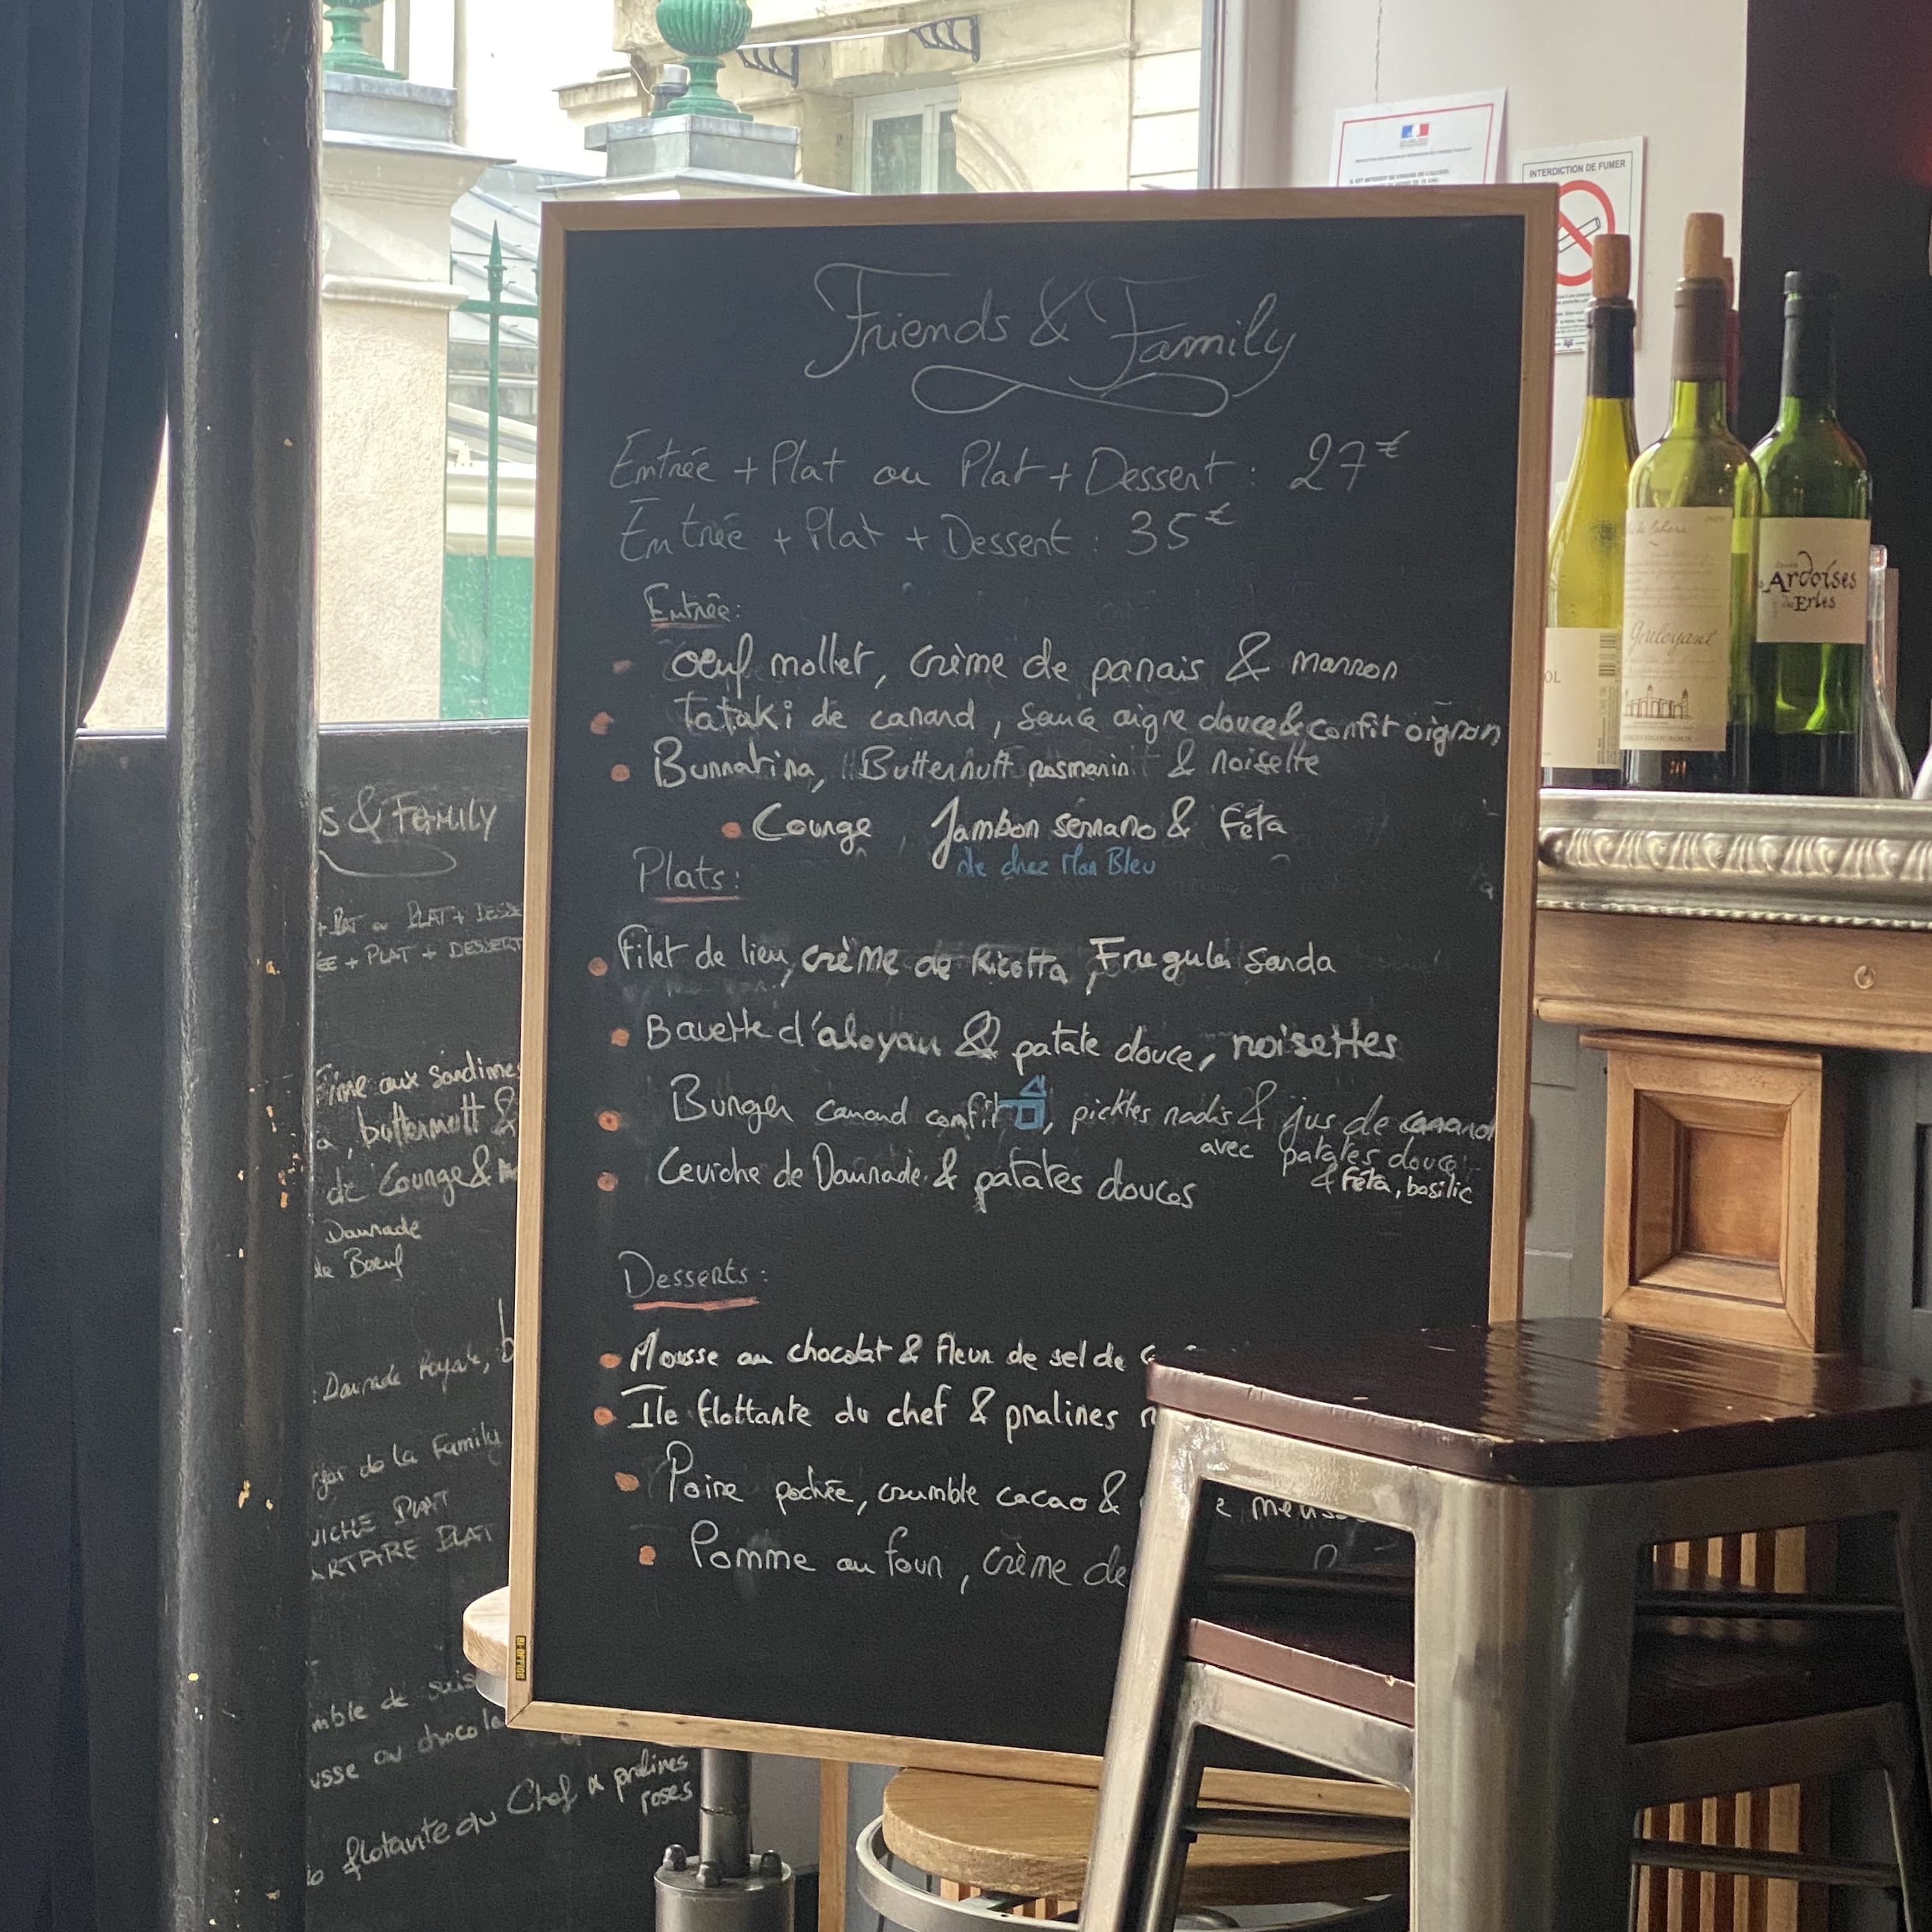 INTERDICTION DE FUMER
Friends & Family
Entrée + Plat ou Plat + Dessert : 27€
Entrée + Plat + Dessert : 35€
Entrée :
oeuf mollet, crème de panais & marron
Tataki de canard, sauce aigre douce & confit oignon
Burratina, Butternutt romarin & noisette
Courge, Jambon serrano & Féta
de chez Mon Bleu
Plats :
Filet de lieu, crème de Ricotta, Fregula Sarda
Bavette d'aloyau & patate douce, noisettes
Burger canard confit, pickles radis & jus de canard
avec patates douce
& Féta, basilic
Ceviche de Daurade & patates douces
Desserts :
Mousse au chocolat & fleur de sel de
Ile flottante du chef & pralines
Poire pochée, crumble cacao &
Pomme au four, crème de
BI-OFFICE
S & FAMILY
+ PLAT ou PLAT + DESSE
ÉE + PLAT + DESSERT
aux sardines
a, butternutt &
de Courge &
Daurade
de Boeuf
Daurade Royale, b
ger de la Family
VICHE PLAT
ARTARE PLAT
mble de
usse au chocola
flotante du Chef & pralines
roses
Gouleyant
Ardoises
Erles
OL